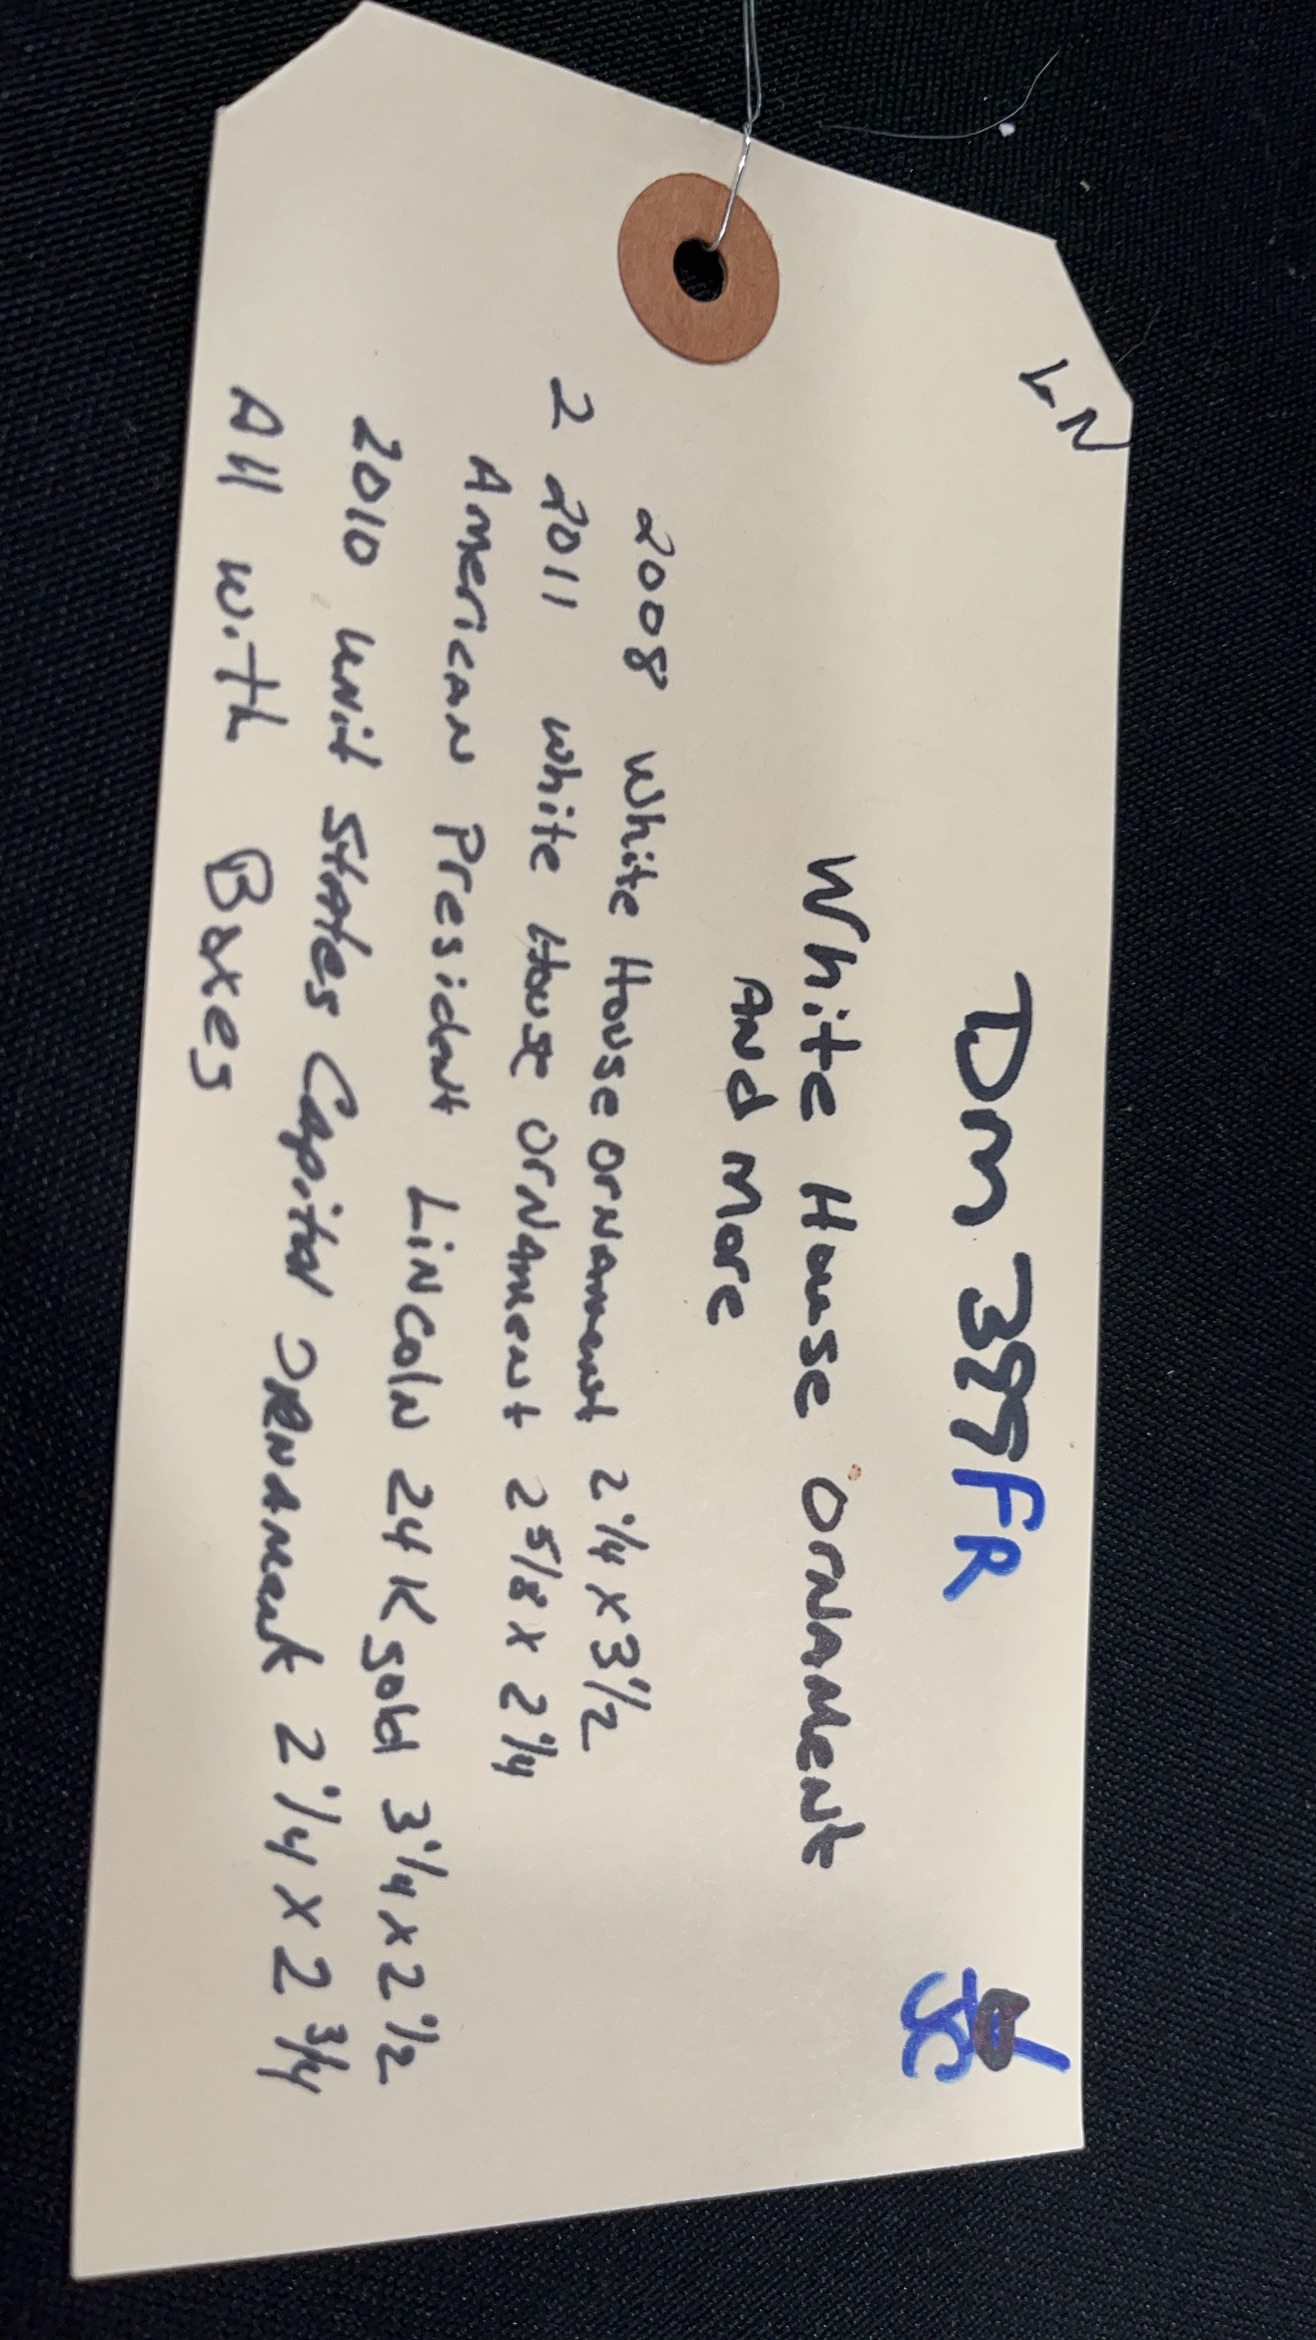 LN
Dm 399FR
JC
White House ornament
And More
2008 White House ornament 2 1/4 x 3 1/2
2 2011 white House ornament 2 5/8 x 2 1/4
American President Lincoln 24 K gold 3 1/4 x 2 1/2
2010 unit States Capital ornament 2 1/4 x 2 3/4
All with Boxes